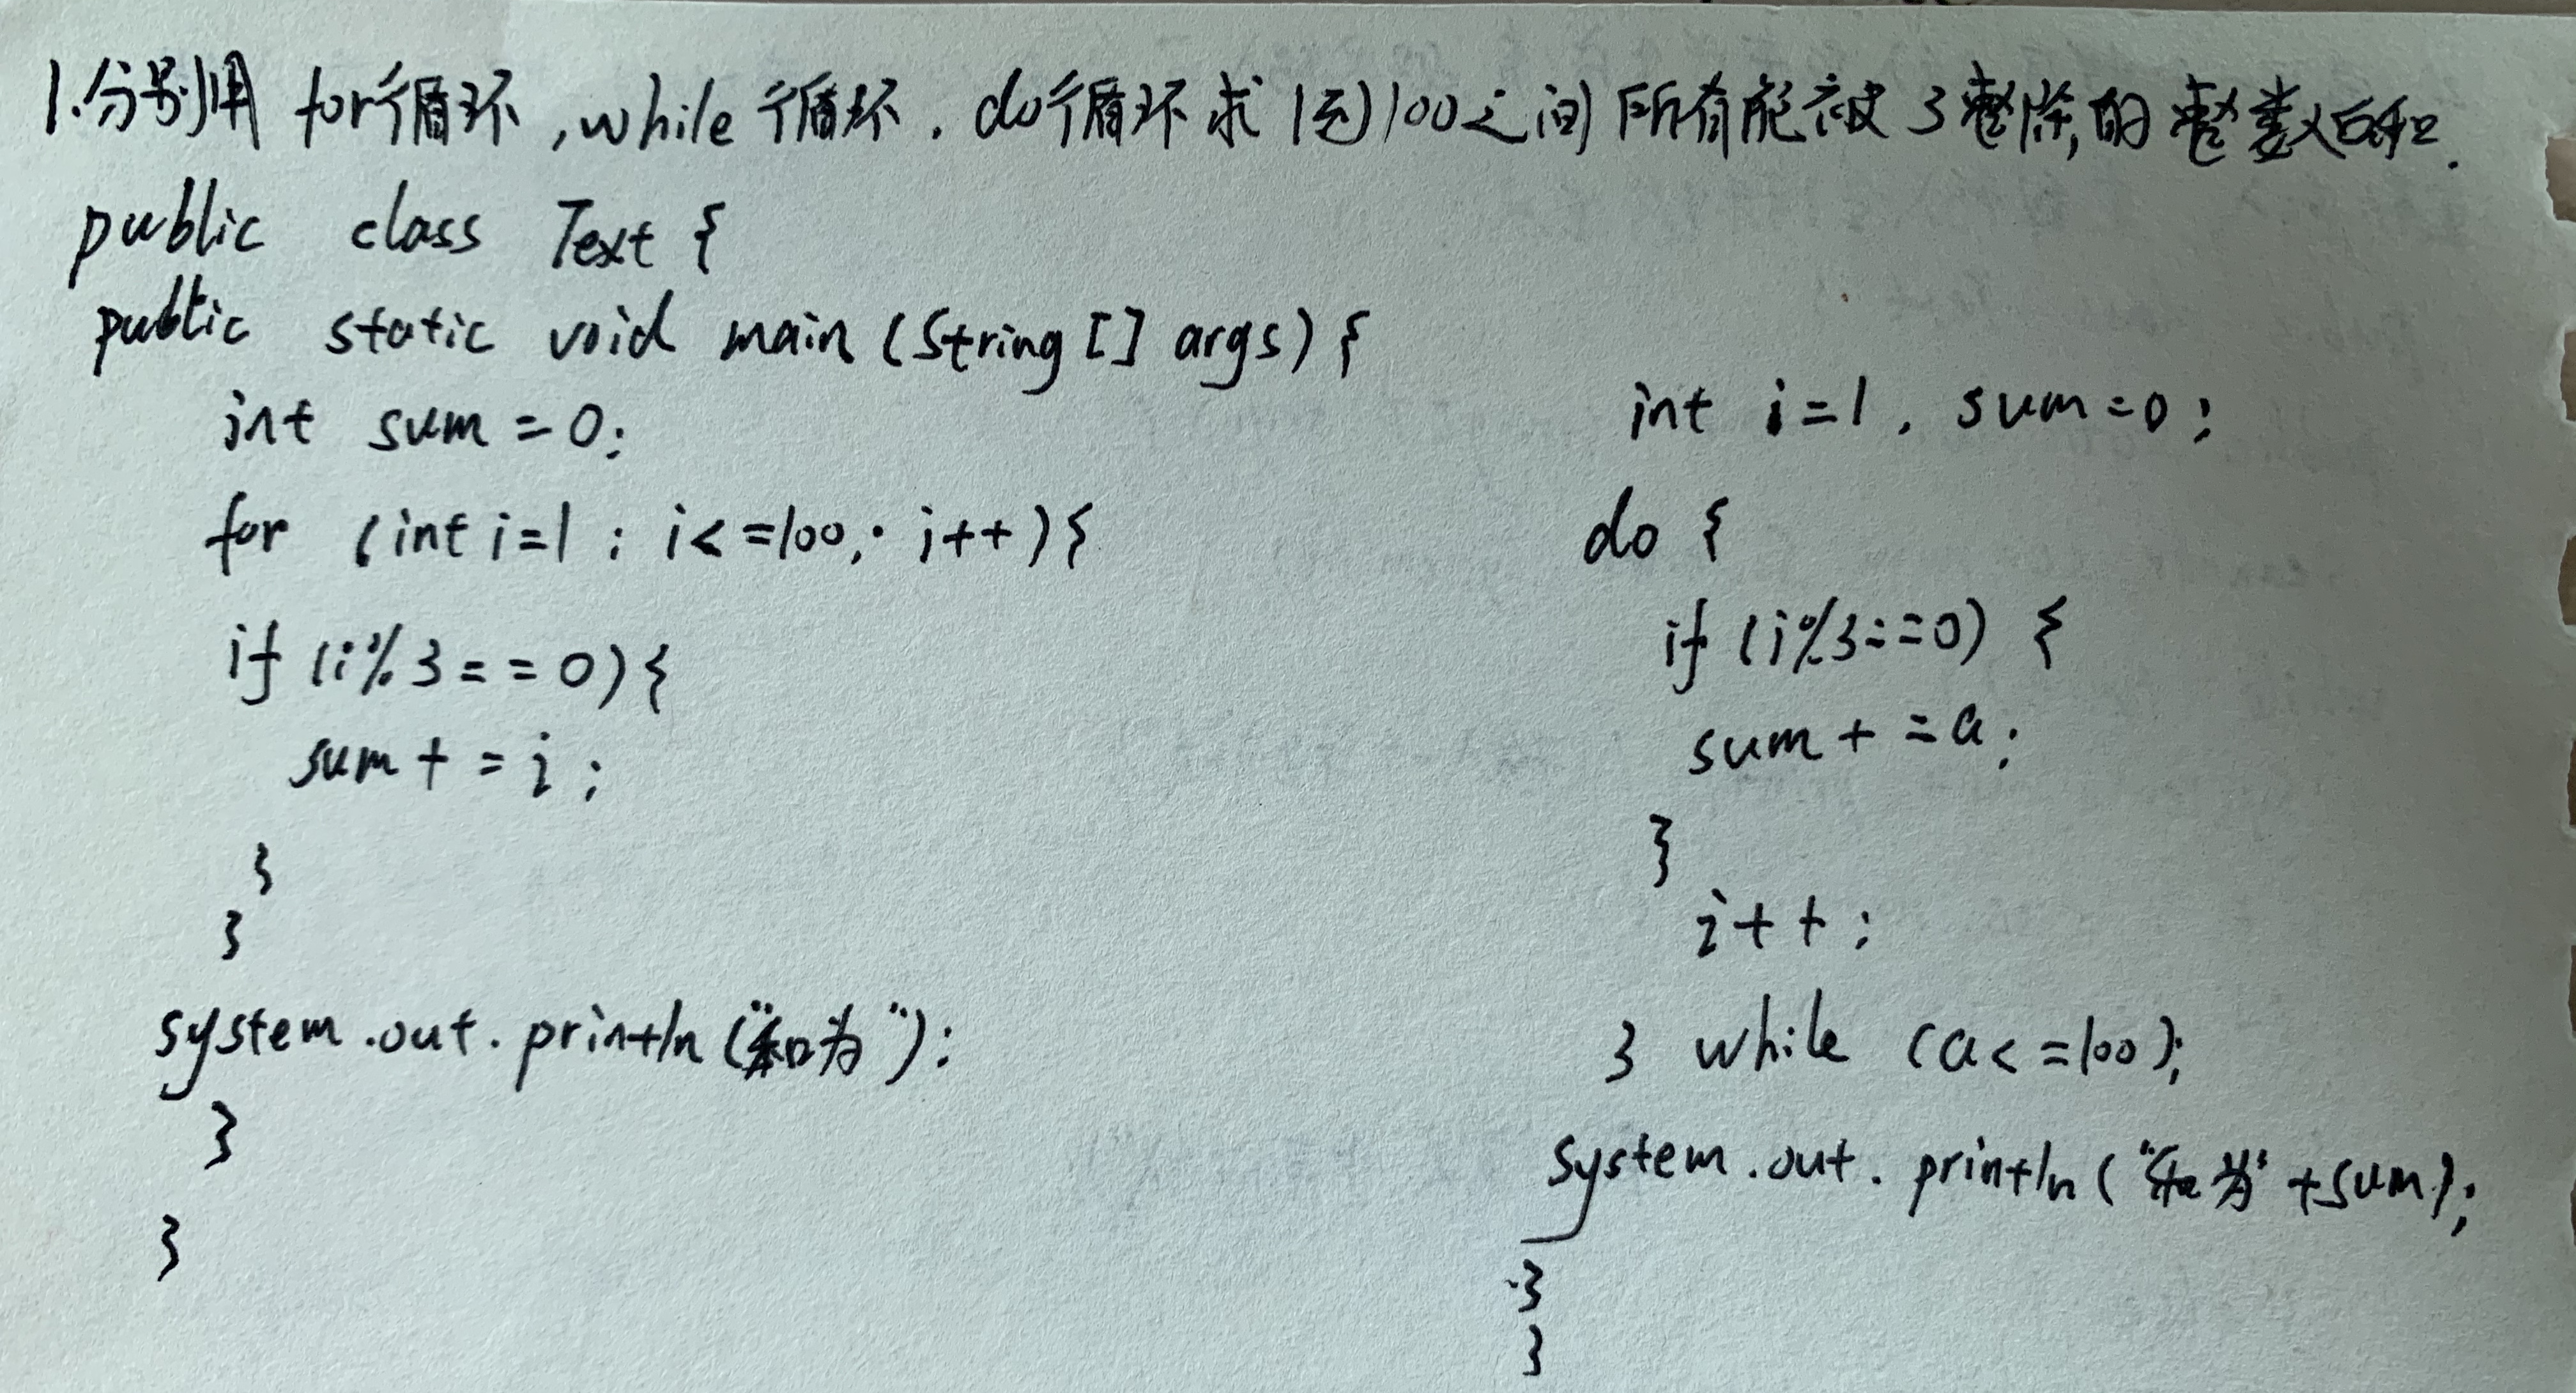 1.分别用 for循环,while循环,do循环求1到100之间所有能被3整除的整数的和.
public class Text {
public static void main (String [] args) {
int sum = 0;
for (int i=1 ; i< =100; i++ ) {
if (i%3= = 0) {
sum + = i ;
}
}
system.out.println ("和为");
}
}
int i=1 , sum=0 ;
do {
if (i%3==0) {
sum + =a ;
}
i + + ;
} while (a< =100);
system.out.println ("和为"+sum);
}
}